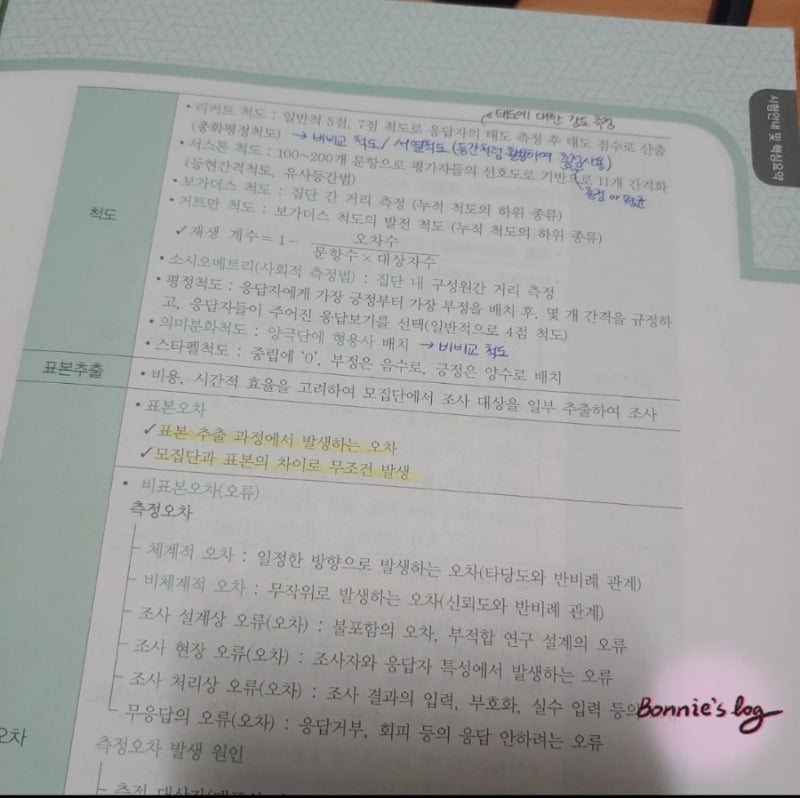 시험안내 및 핵심요약
태도에 대한 강도 측정
척도
• 리커트 척도 : 일반적 5점, 7점 척도로 응답자의 태도 측정 후 태도 점수로 산출
(총화평정척도) → 비비교 척도 / 서열척도 (등간처럼 활용하여 사용)
• 서스톤 척도 : 100~200개 문항으로 평가자들의 선호도로 기반으로 11개 간격화
(등현간격척도, 유사등간법)
평균
• 보가더스 척도 : 집단 간 거리 측정 (누적 척도의 하위 종류)
• 거트만 척도 : 보가더스 척도의 발전 척도 (누적 척도의 하위 종류)
✓재생 계수=1- 오차수
문항수×대상자수
• 소시오메트리(사회적 측정법) : 집단 내 구성원간 거리 측정
• 평정척도 : 응답자에게 가장 긍정부터 가장 부정을 배치 후, 몇 개 간격을 규정하
고, 응답자들이 주어진 응답보기를 선택(일반적으로 4점 척도)
• 의미분화척도 : 양극단에 형용사 배치 → 비비교 척도
• 스타펠척도 : 중립에 '0', 부정은 음수로, 긍정은 양수로 배치
표본추출
• 비용, 시간적 효율을 고려하여 모집단에서 조사 대상을 일부 추출하여 조사
• 표본오차
✓표본 추출 과정에서 발생하는 오차
✓모집단과 표본의 차이로 무조건 발생
• 비표본오차(오류)
측정오차
체계적 오차 : 일정한 방향으로 발생하는 오차(타당도와 반비례 관계)
비체계적 오차 : 무작위로 발생하는 오차(신뢰도와 반비례 관계)
조사 설계상 오류(오차) : 불포함의 오차, 부적합 연구 설계의 오류
조사 현장 오류(오차) : 조사자와 응답자 특성에서 발생하는 오류
조사 처리상 오류(오차) : 조사 결과의 입력, 부호화, 실수 입력 등의
Bonnie's log
무응답의 오류(오차) : 응답거부, 회피 등의 응답 안하려는 오류
오차
측정오차 발생 원인